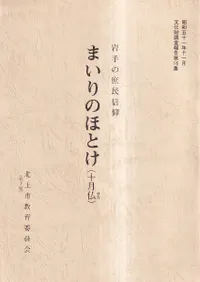 昭和五十一年十一月
文化財調査報告第18集
岩手の庶民信仰
まいりのほとけ(十月仏)
北上市教育委員会